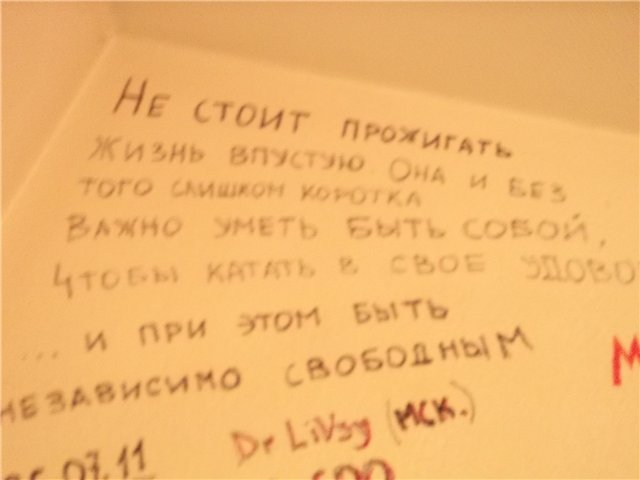 НЕ СТОИТ ПРОЖИГАТЬ
ЖИЗНЬ ВПУСТУЮ ОНА И БЕЗ
ТОГО СЛИШКОМ КОРОТКА
ВАЖНО УМЕТЬ БЫТЬ СОБОЙ,
ЧТОБЫ КАТАТЬ В СВОЕ УДОВО
... И ПРИ ЭТОМ БЫТЬ
НЕЗАВИСИМО СВОБОДНЫМ
М
Dr LiVsy (МСК.)
07.11